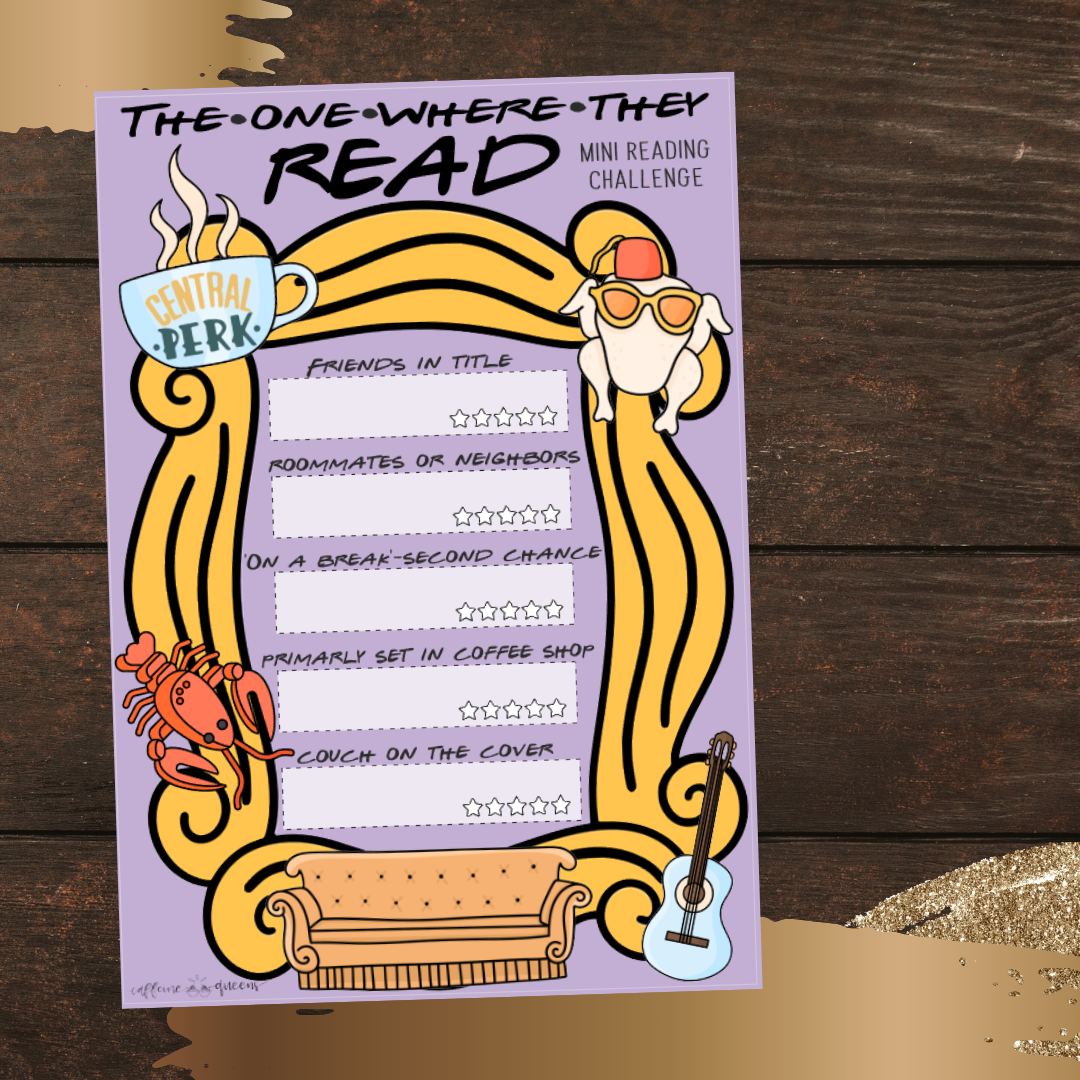 THE•ONE•WHERE•THEY
READ
MINI READING
CHALLENGE
CENTRAL
•PERK•
FRIENDS IN TITLE
ROOMMATES OR NEIGHBORS
'ON A BREAK'-SECOND CHANCE
PRIMARLY SET IN COFFEE SHOP
COUCH ON THE COVER
caffeine queens